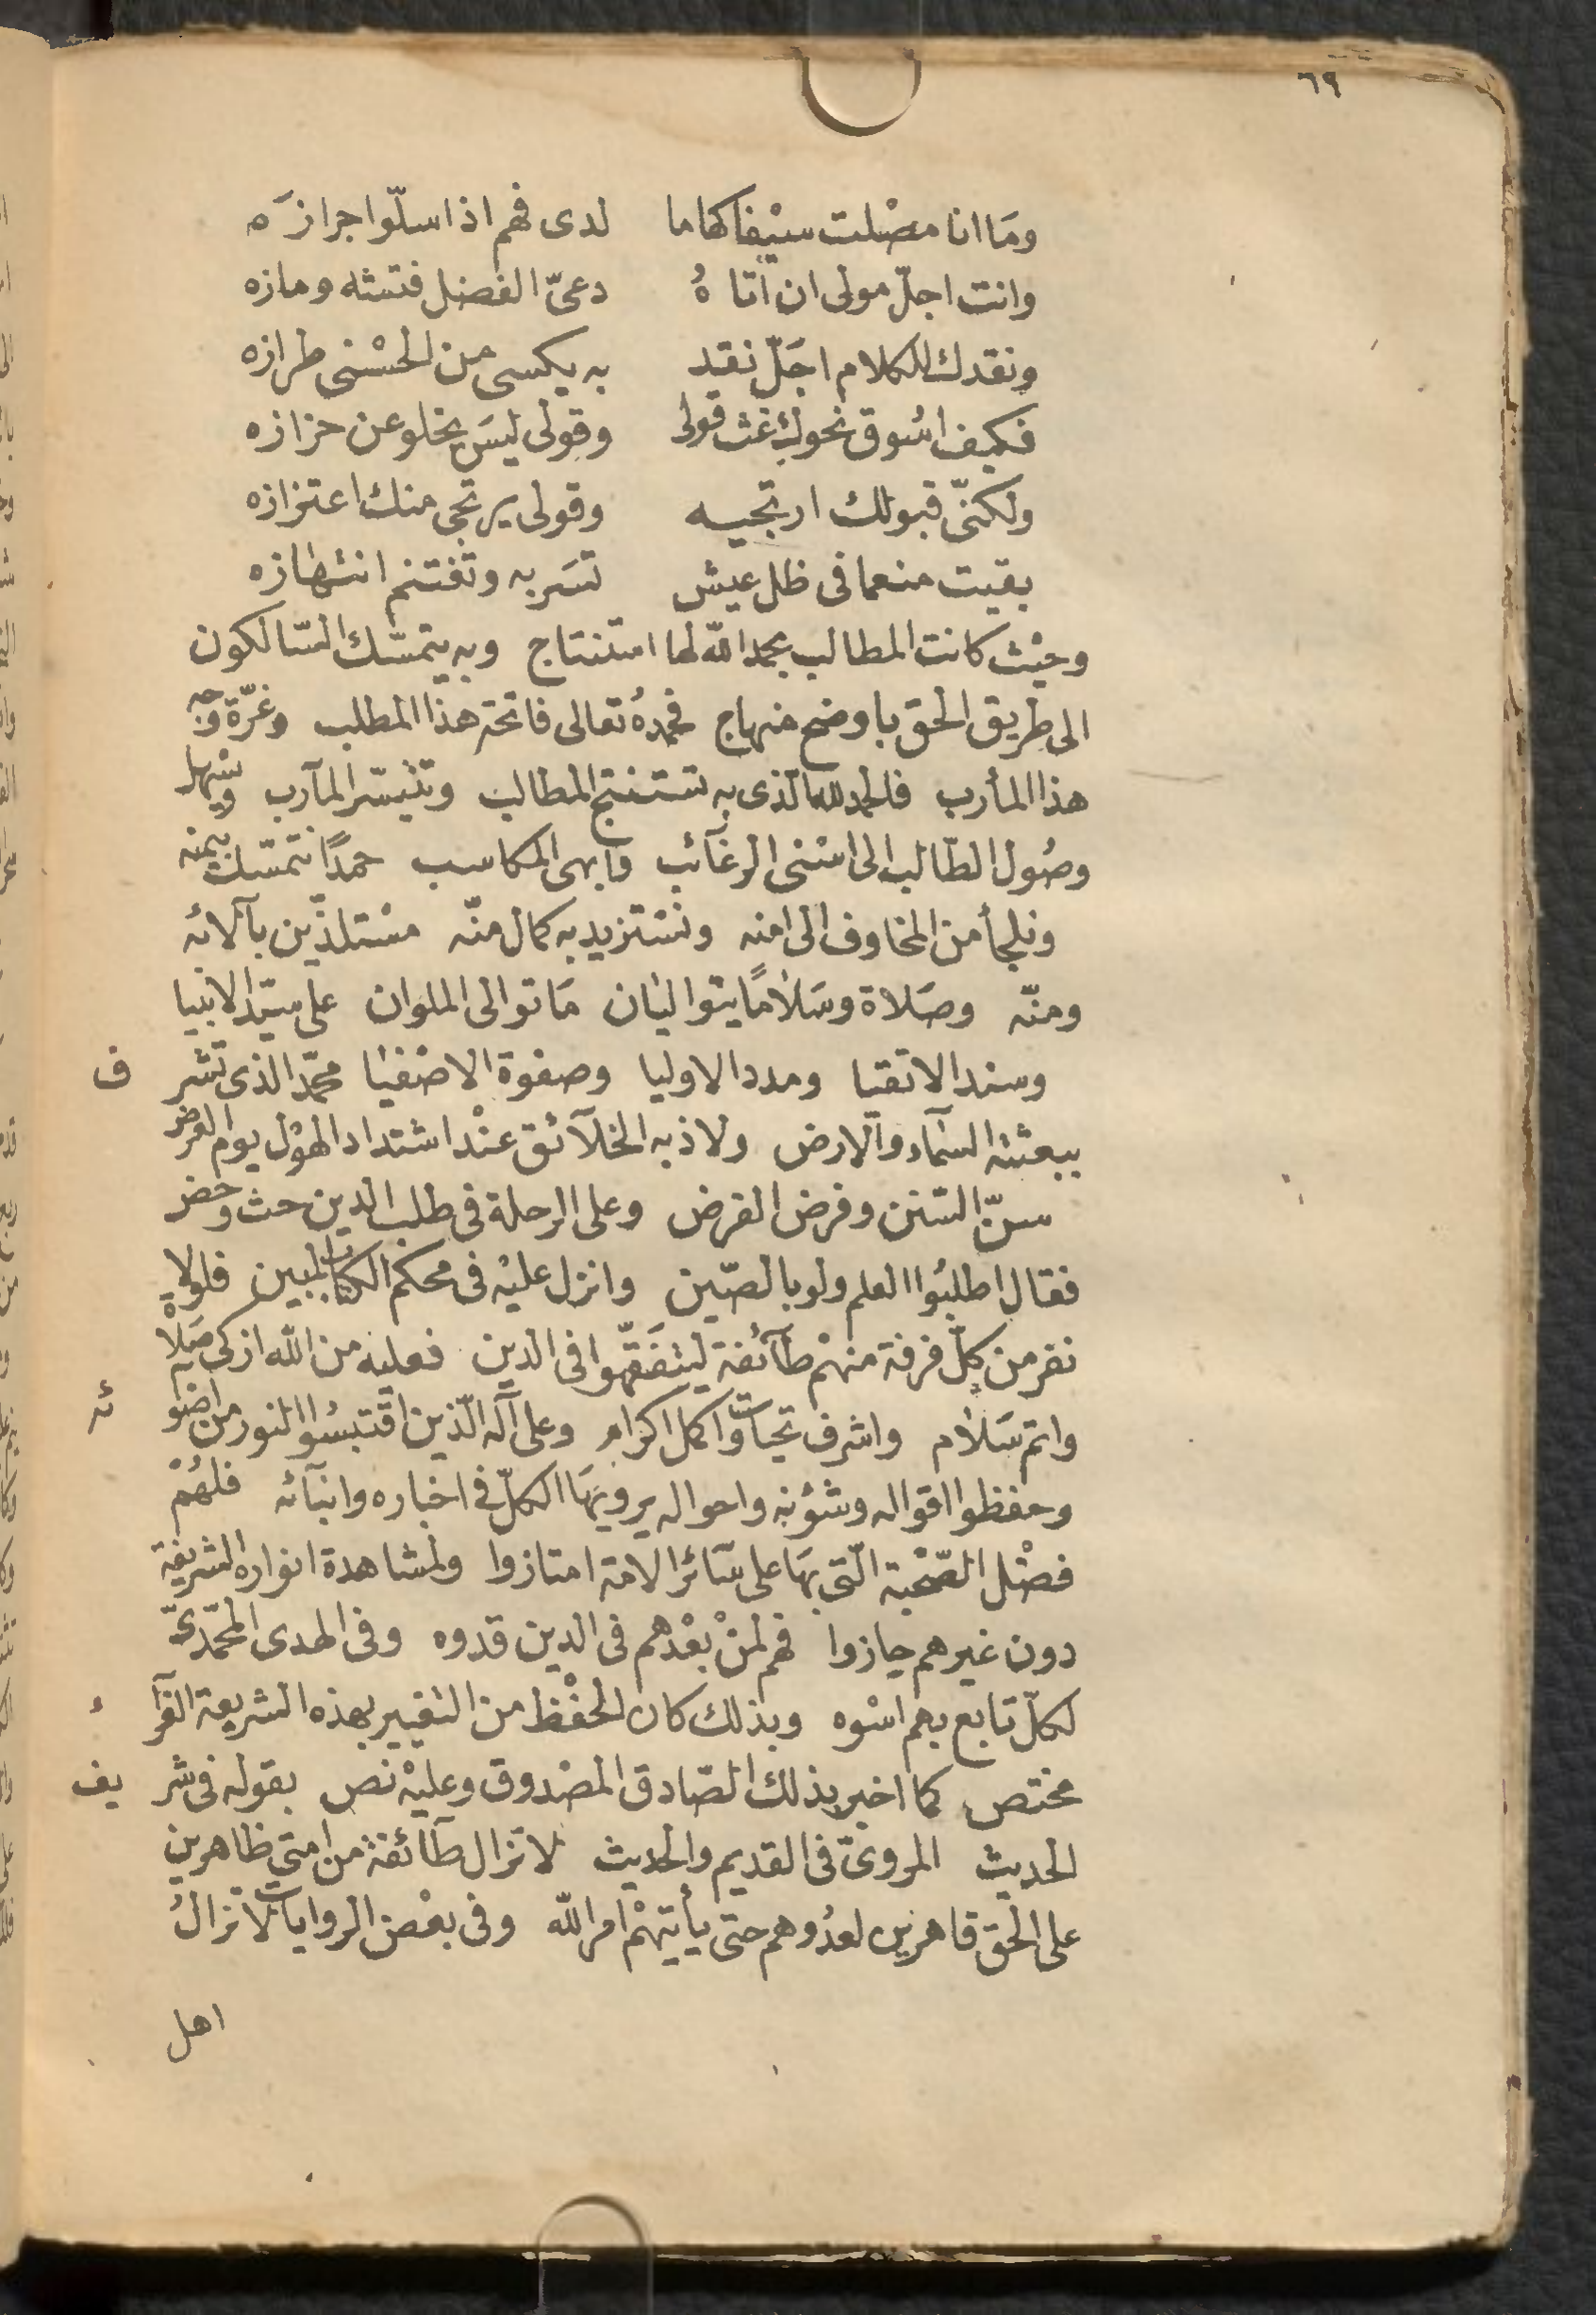 ٦٩
ومَا انا مصْلت سيْفا كهاما لدى فهم اذا سلّوا جرازَه
وانت اجلّ مولى ان اتاهُ دعىّ الفضل فتشه ومازه
ونقدك للكلام اجَلّ نقد به يكسى من الحسْنى طرازه
فكيف اسُوق نحوك غث قولى وقولى ليسَ يخلو عن حزازه
ولكنّى قبولك ارتجيه وقولى يرتجى منك اعتزازه
بقيت منعما فى ظل عيش تسَر به وتغتنم انتهازه
وحيْث كانت المطالب بحمد الله لها استنتاج وبه يتمسّك السّالكون
الى طريق الحق باوضح منهاج فحمدهُ تعالى فاتحة هذا المطلب وغرّة وجه
هذا المأرب فالحمد لله الّذى به تستنتج المطالب وتتيسّر المآرب ويسْهل
وصُول الطّالب الى اسْنى الرغآئب وابهى المكاسب حمدًا نتمسّك بيمنه
ونلجأ من المخاوف الى امنه ونستزيد به كمال منّه مسْتلذّين بآلائه
ومنّه وصَلاة وسَلامًا يتواليَان مَا توالى الملوان على سيّد الانبيا
وسند الاتقيا ومدد الاوليا وصفوة الاصْفيَا محمّد الذى تشرف
ببعثته السّمآء والارض ولاذ به الخلآئق عنْد اشتداد الهوْل يوم العرض
سنّ السّنن وفرض الفرض وعلى الرحلة فى طلب الدين حث وحض
فقال اطلبُوا العلم ولو بالصّين وانزل عليْه فى محكم الكتاب المبين فلولا
نفر من كلّ فرقة منهمْ طآئفة ليتفَقّهوا فى الدين فعليه من الله ازكى صَلاة
واتم سَلام واشرف تحيات واكمل اكرام وعلى آله الّذين اقتبسُوا النور من اضوائه
وحفظوا اقواله وشؤنه واحواله يرويهَا الكلّ فى اخباره وانبآئه فلهُمْ
فضْل الصّحْبة الّتى بهَا على سَآئر الامة امتازوا ولمشاهدة انواره الشريفة
دون غيرهم حازوا فهم لمنْ بعْدهم فى الدين قدوه وفى الهدى المحمّدىّ
لكلّ تابع بهم اسْوه وبذلك كان الحفْظ من التغيير بهذه الشريعة الغرآء
مختص كما اخبر بذلك الصّادق المصْدوق وعليْه نص بقوله فى شريف
الحديث المروىّ فى القديم والحديث لا تزال طآئفة من امتى ظاهرين
على الحق قاهرين لعدُوهم حتى يأتيهمْ امر الله وفى بعْض الروايات لا تزالُ
اهل